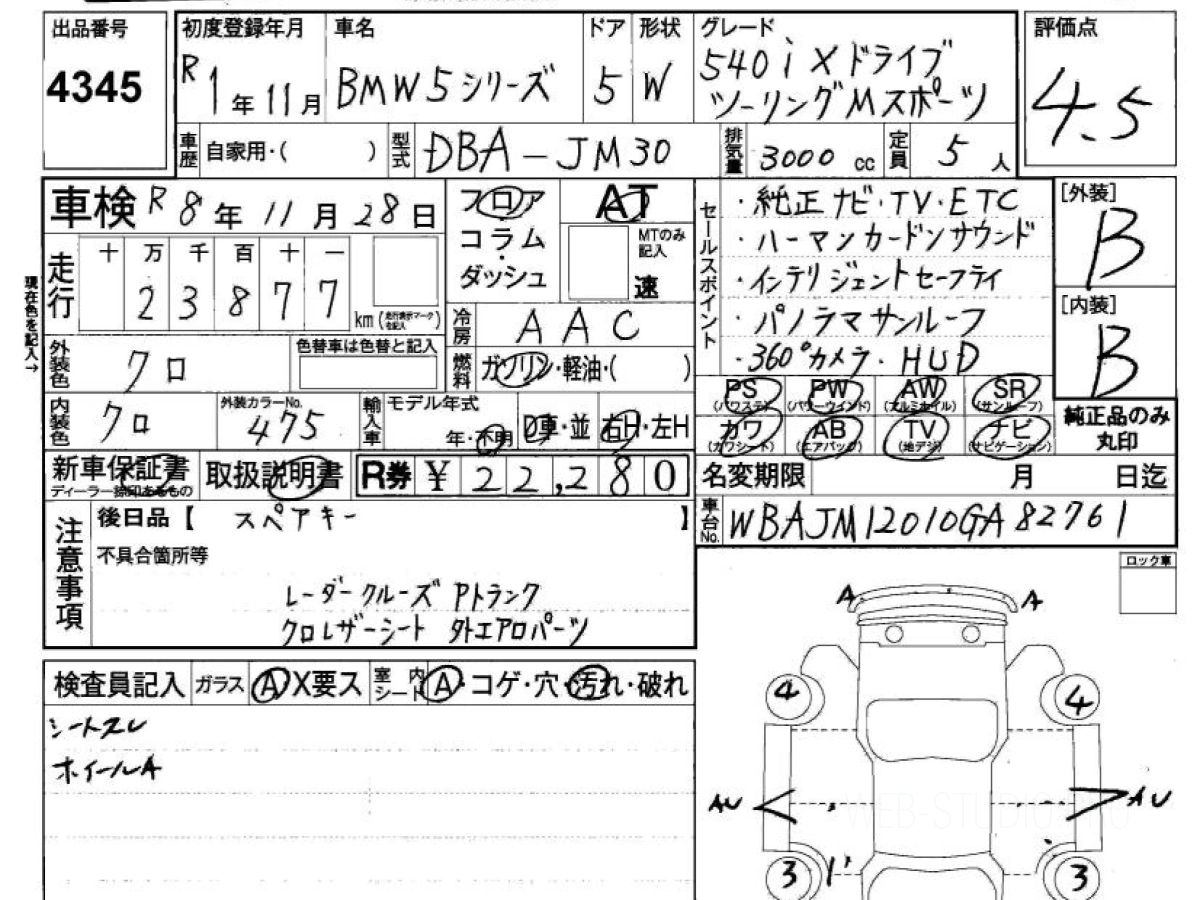 出品番号
4345
初度登録年月
R 1年 11月
車名
BMW 5シリーズ
ドア
5
形状
W
グレード
540i Xドライブ
ツーリングMスポーツ
評価点
4.5
車歴 自家用・( )
型式 DBA-JM30
排気量 3000 cc
定員 5 人
車検 R 8年 11月 28日
フロア
コラム
・
ダッシュ
AT
MTのみ記入
速
セールスポイント
・純正ナビ・TV・ETC
・ハーマンカードンサウンド
・インテリジェントセーフティ
・パノラマサンルーフ
・360°カメラ・HUD
[外装]
B
[内装]
B
現在色を記入→
走行
十 万 千 百 十 一
2 3 8 7 7
km(走行表示マークを記入)
冷房 AAC
外装色 クロ
色替車は色替と記入
燃料 ガソリン・軽油・( )
PS (パワステ) PW (パワーウインド) AW (アルミホイル) SR (サンルーフ)
カワ (カワシート) AB (エアバッグ) TV (地デジ) ナビ (ナビゲーション)
純正品のみ
丸印
内装色 クロ
外装カラーNo. 475
輸入車
モデル年式
年・不明
D車・並
右H・左H
新車保証書
ディーラー捺印あるもの
取扱説明書
R券 ¥ 22,280
名変期限 月 日迄
車台No. WBAJM12010GA82761
注意事項
後日品【 スペアキー 】
不具合箇所等
レーダークルーズ Pトランク
クロレザーシート 外エアロパーツ
ロック車
検査員記入 ガラス A X要ス 室内シート A・コゲ・穴・汚れ・破れ
シートスレ
ホイールA
A A
4 4
AU AU
WEB-STUDIO.PRO
3 1' 3